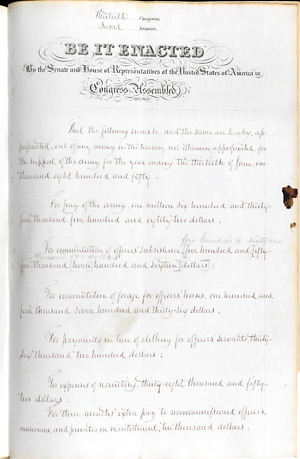 Thirtieth Congress
Second Session
BE IT ENACTED
By the Senate and House of Representatives of the United States of America in
Congress Assembled,
That the following sums be and the same are hereby, ap-
propriated, out of any money in the treasury not otherwise appropriated for
the support of the army for the year ending the thirtieth of June, one
thousand eight hundred and fifty:
For pay of the army, one million six hundred and thirty-
five thousand five hundred and eighty two dollars.
five hundred & eighty
For commutation of officers' subsistence, five hundred and fifty-
thousand seven hundred and sixteen dollars;
For commutation of forage for officers' horses, one hundred and
four thousand seven hundred and thirty-six dollars.
For payments in lieu of clothing for officers' servants thirty-
six thousand five hundred dollars;
For expenses of recruiting, thirty-eight thousand and fifty-
two dollars;
For three months' extra pay to non-commissioned officers,
musicians, and privates, on re-enlistment, ten thousand dollars;